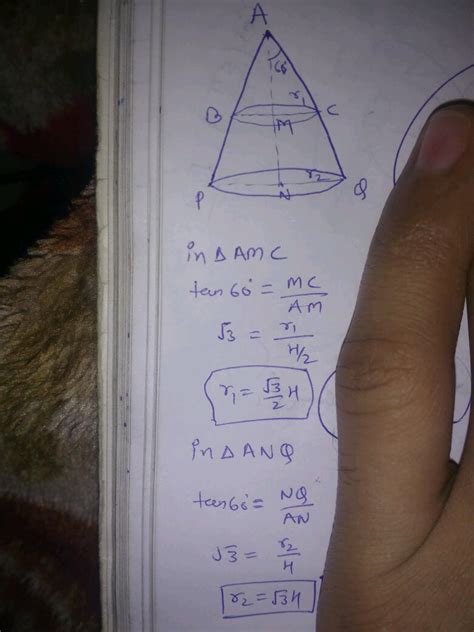 A
60°
B r₁ C
M
r₂
P N Q
in Δ AMC
tan60° = MC/AM
√3 = r₁/(H/2)
r₁ = √3/2 H
in Δ ANQ
tan60° = NQ/AN
√3 = r₂/H
r₂ = √3H